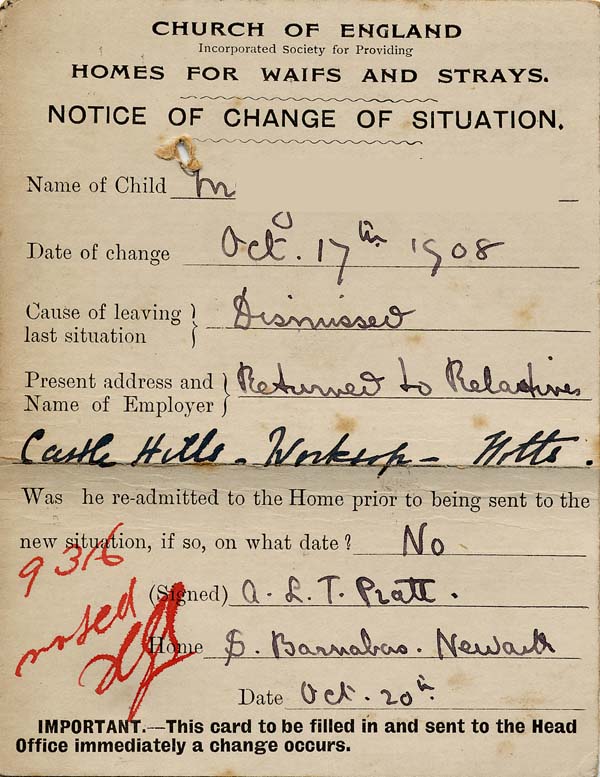 CHURCH OF ENGLAND
Incorporated Society for Providing
HOMES FOR WAIFS AND STRAYS.
NOTICE OF CHANGE OF SITUATION.
Name of Child M
Date of change Oct. 17th 1908
Cause of leaving last situation } Dismissed
Present address and Name of Employer } Returned to Relatives
Castle Hills - Worksop - Notts.
Was he re-admitted to the Home prior to being sent to the
new situation, if so, on what date? No
9316
(Signed) A. L. T. Pratt.
noted
Home S. Barnabas. Newark
Date Oct. 20th
IMPORTANT.—This card to be filled in and sent to the Head
Office immediately a change occurs.